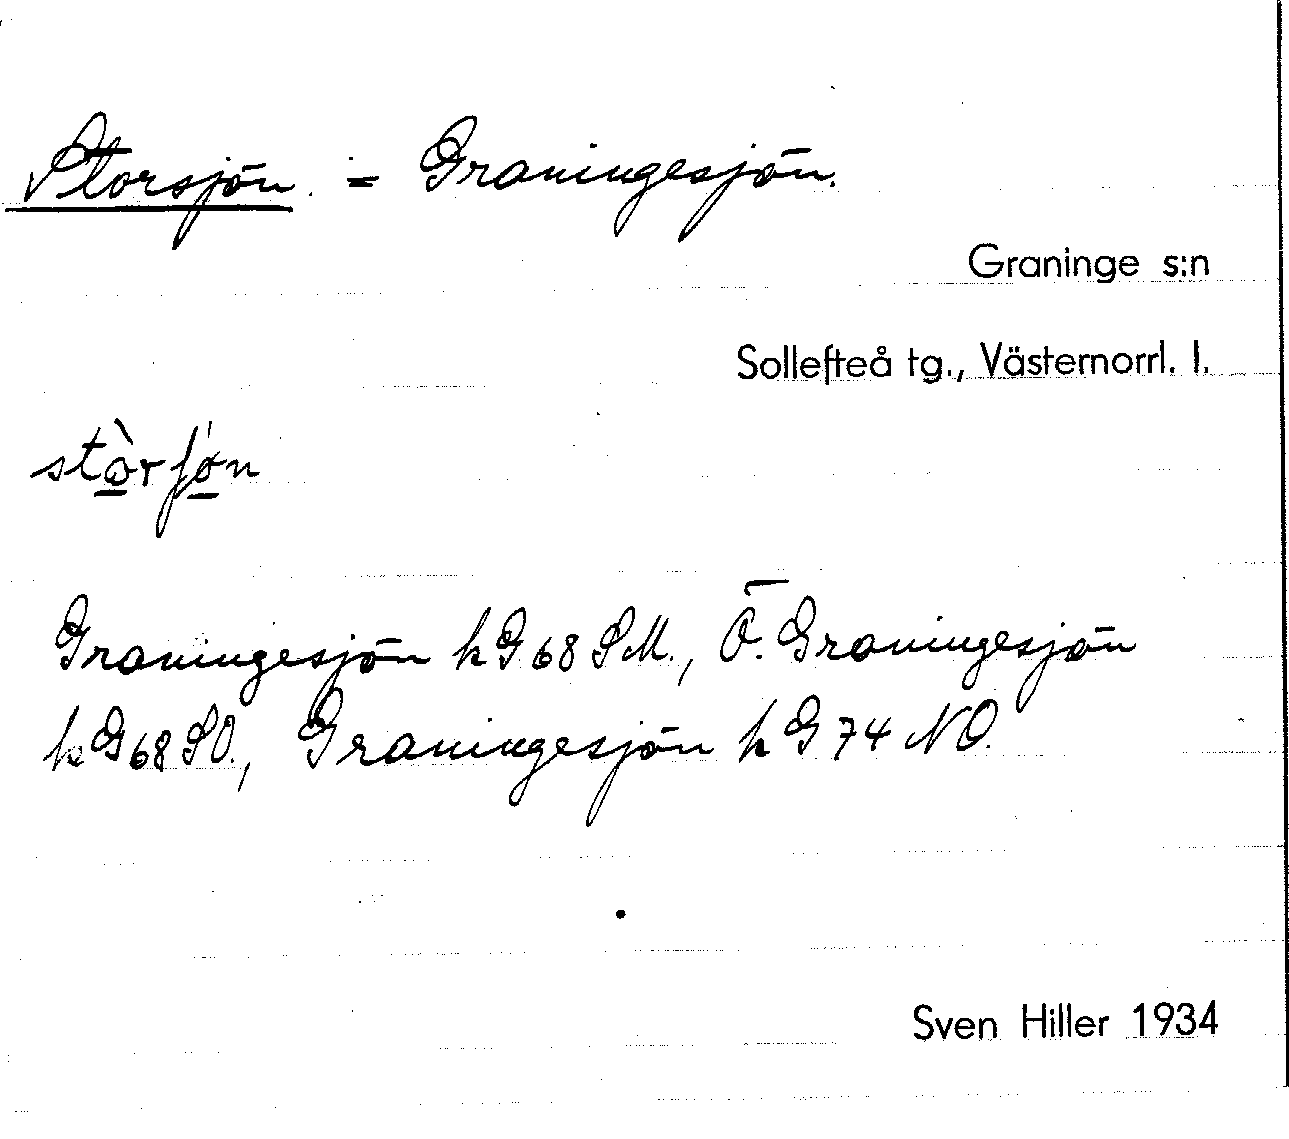 Storsjön. = Graningesjön.
Graninge s:n
Sollefteå tg., Västernorrl. l.
Graningesjön kG 68 SM., Ö. Graningesjön
kG 68 SO., Graningesjön kG 74 NO.
Sven Hiller 1934